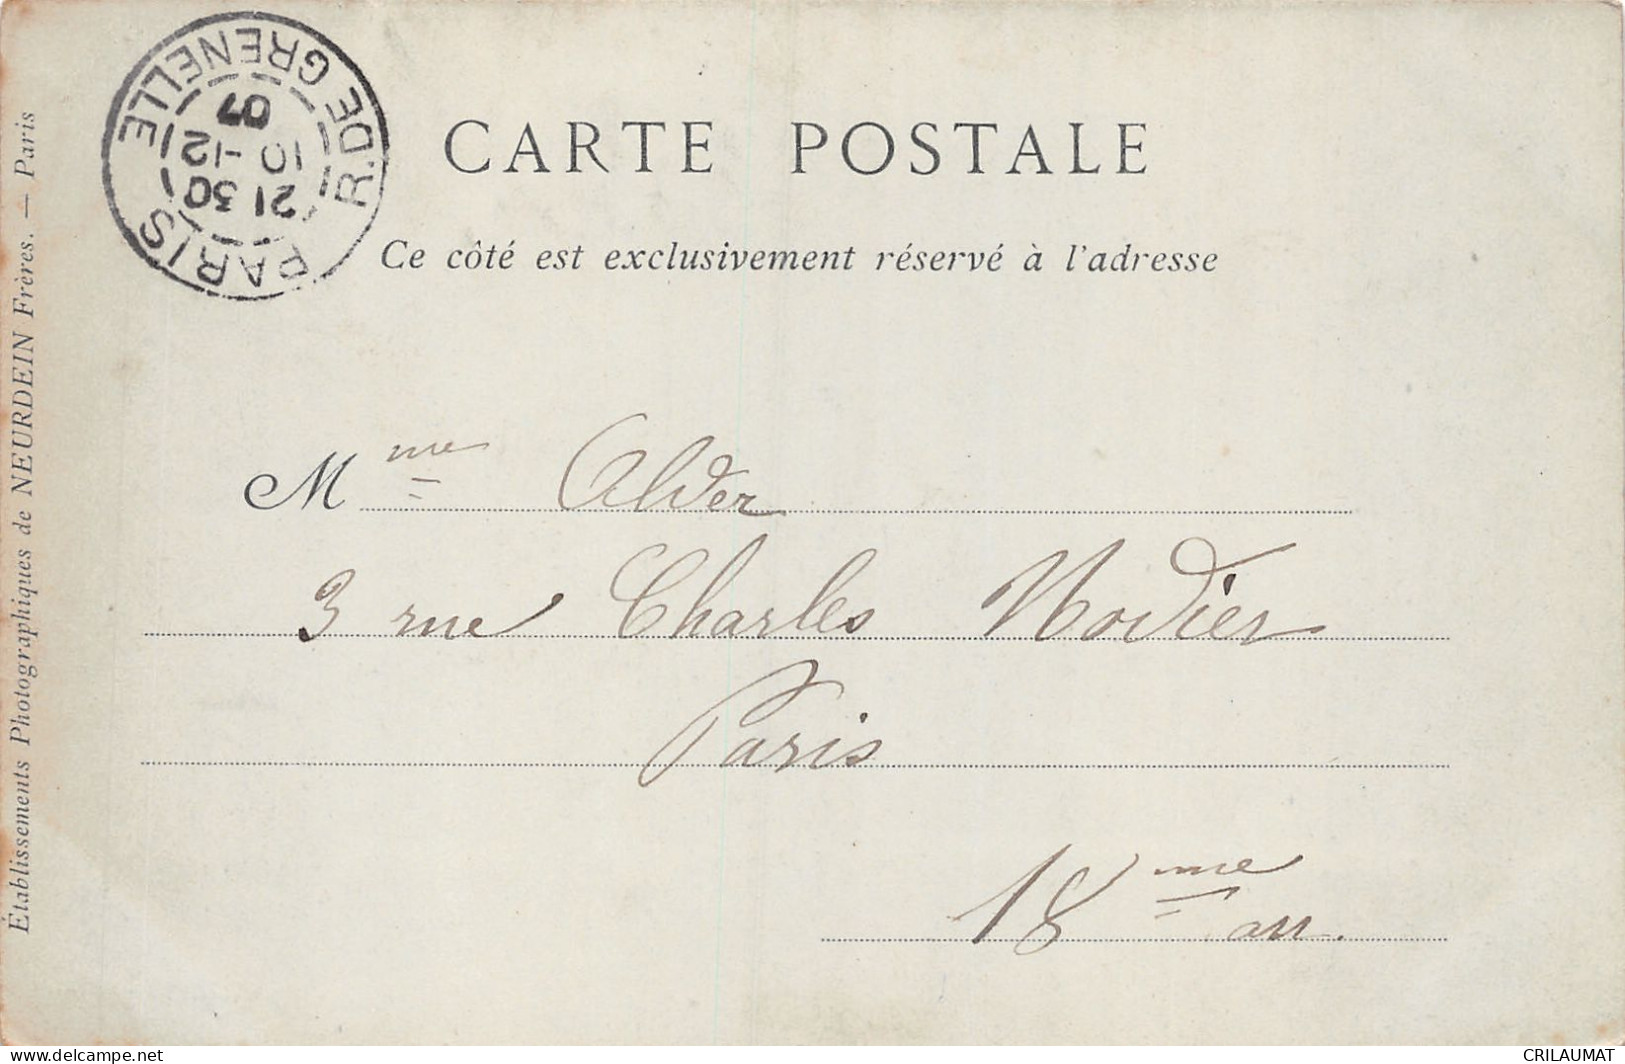 CARTE POSTALE
Ce côté est exclusivement réservé à l'adresse
PARIS R. DE GRENELLE
21 30
10 -12
07
Mme Alder
3 rue Charles Nodier
Paris
18ème arr.
Établissements Photographiques de NEURDEIN Frères. — Paris
www.delcampe.net
CRILAUMAT